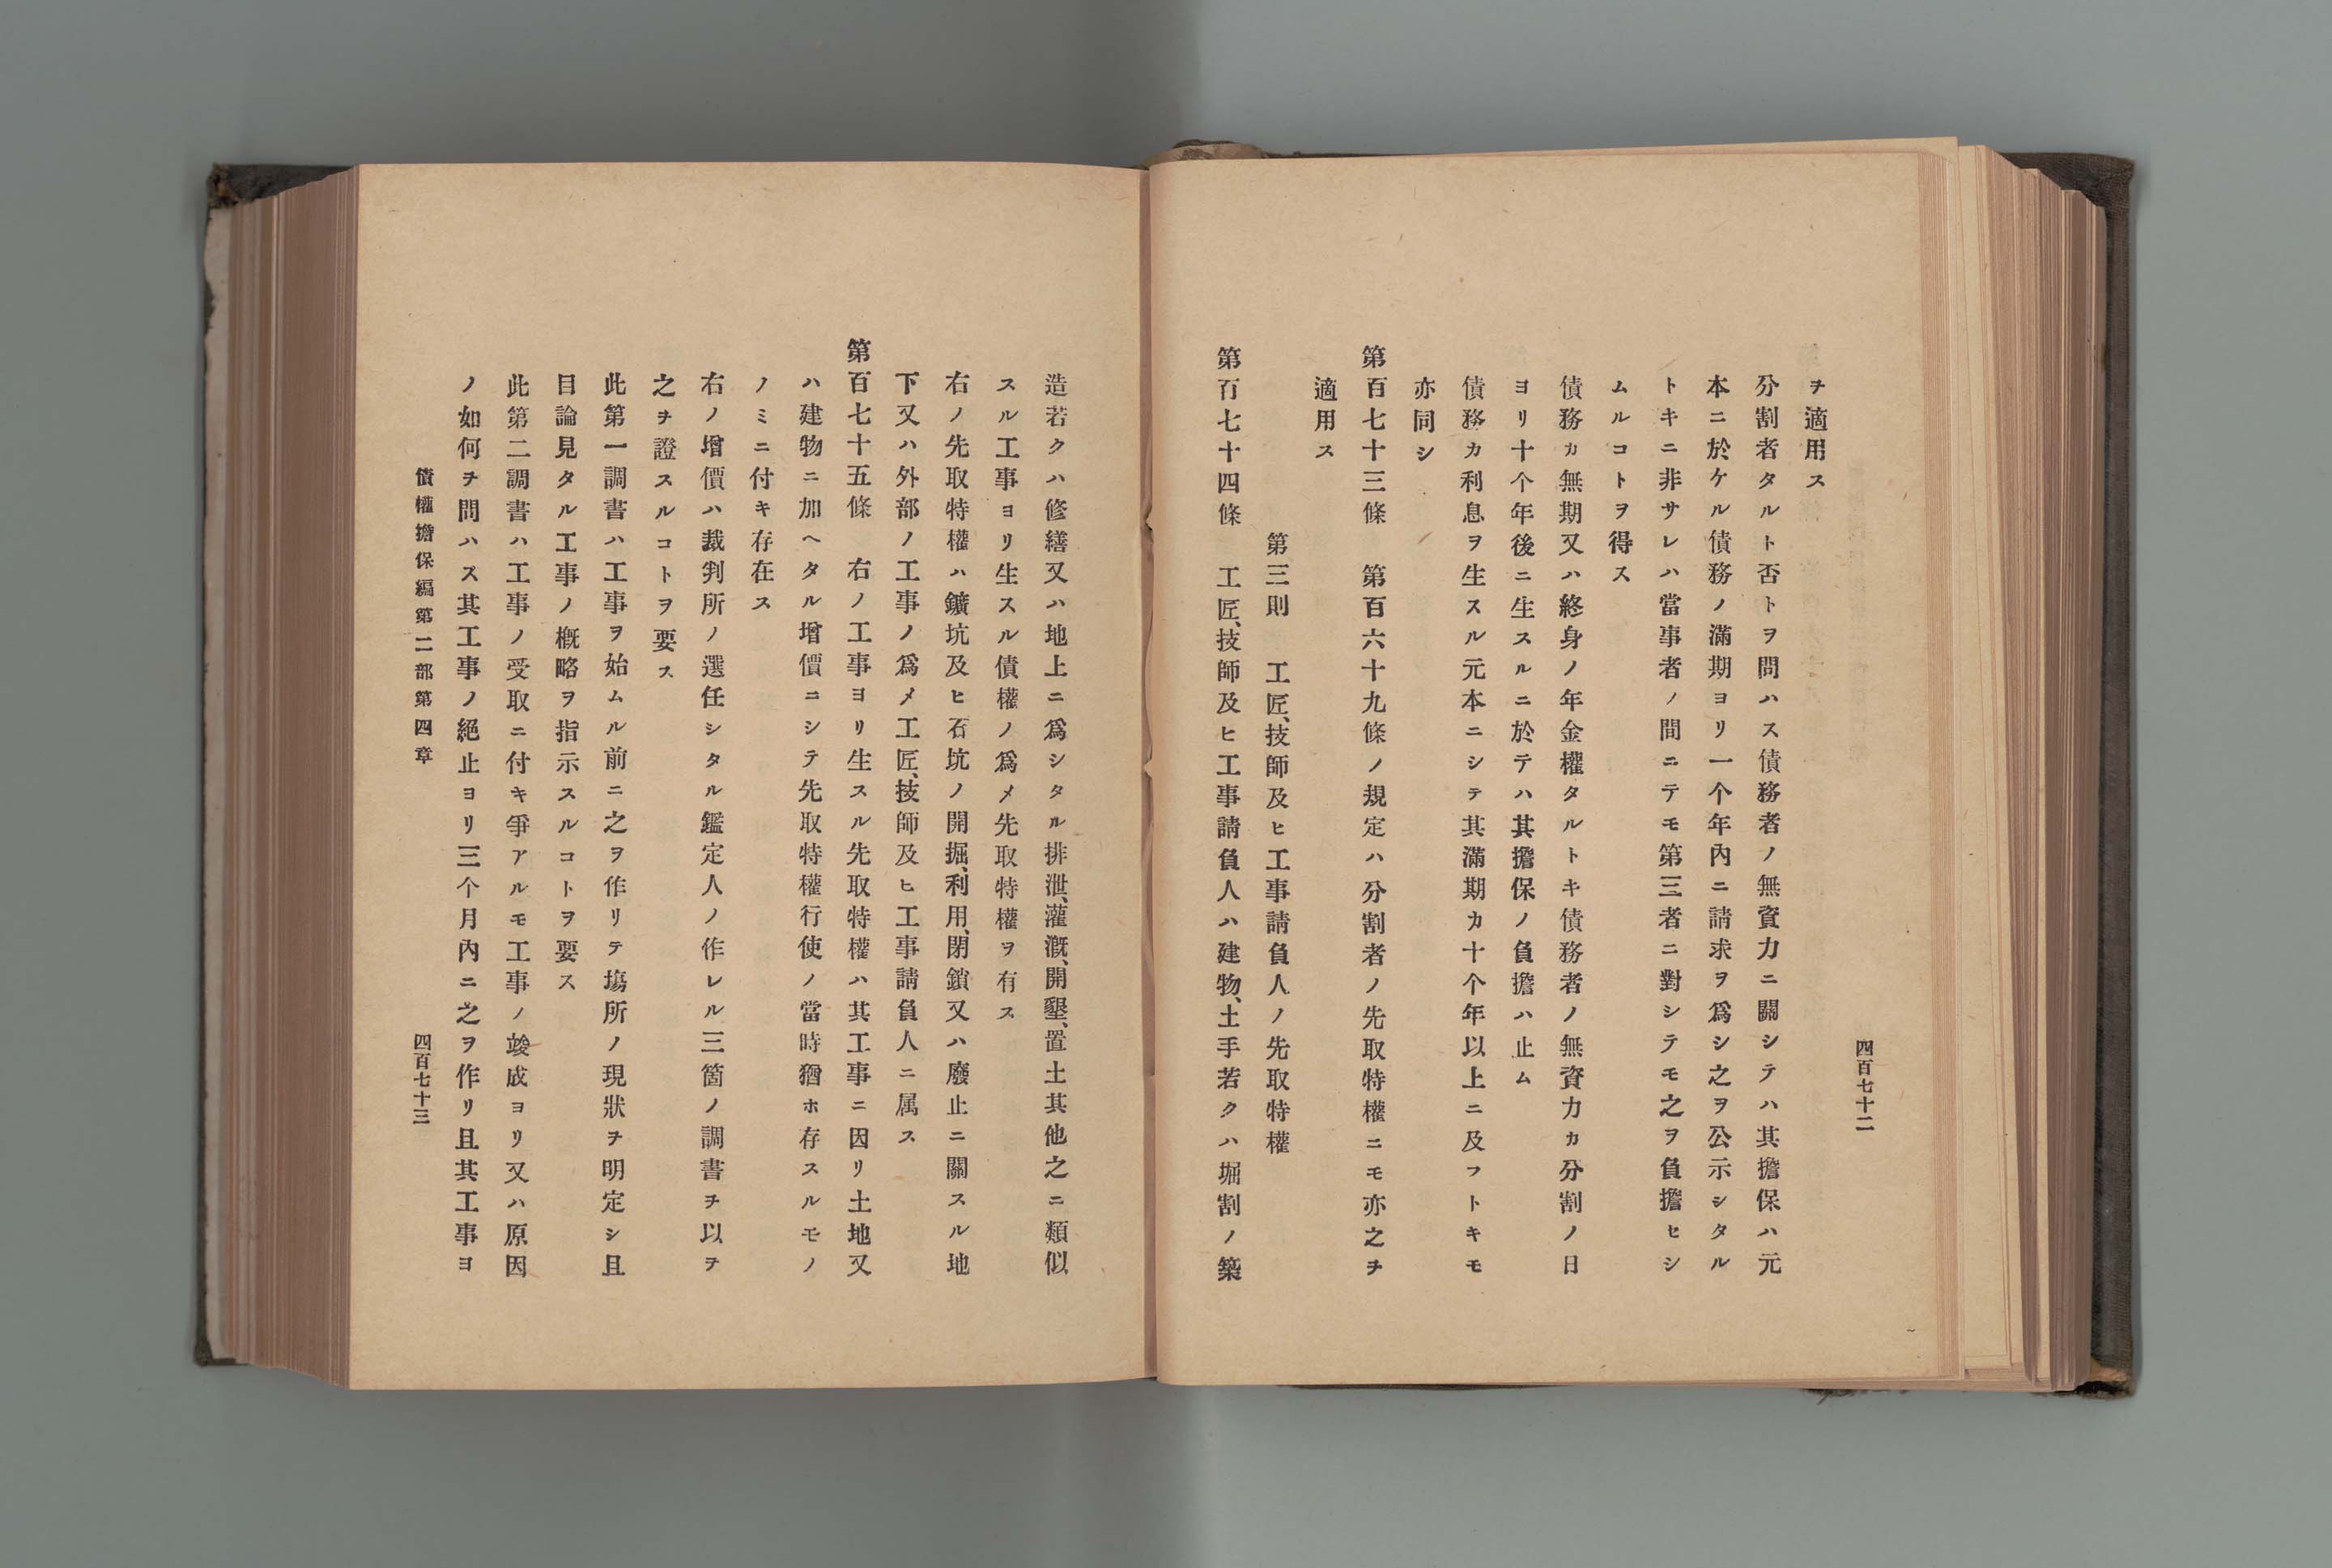 四百七十二
ヲ適用ス
分割者タルト否トヲ問ハス債務者ノ無資力ニ關シテハ其擔保ハ元
本ニ於ケル債務ノ滿期ヨリ一个年內ニ請求ヲ爲シ之ヲ公示シタル
トキニ非サレハ當事者ノ間ニテモ第三者ニ對シテモ之ヲ負擔セシ
ムルコトヲ得ス
債務カ無期又ハ終身ノ年金權タルトキ債務者ノ無資力カ分割ノ日
ヨリ十个年後ニ生スルニ於テハ其擔保ノ負擔ハ止ム
債務カ利息ヲ生スル元本ニシテ其滿期カ十个年以上ニ及フトキモ
亦同シ
第百七十三條　第百六十九條ノ規定ハ分割者ノ先取特權ニモ亦之ヲ
適用ス
第三則　工匠、技師及ヒ工事請負人ノ先取特權
第百七十四條　工匠、技師及ヒ工事請負人ハ建物、土手若クハ堀割ノ築
造若クハ修繕又ハ地上ニ爲シタル排泄、灌漑、開墾、置土其他之ニ類似
スル工事ヨリ生スル債權ノ爲メ先取特權ヲ有ス
右ノ先取特權ハ鑛坑及ヒ石坑ノ開掘、利用、閉鎖又ハ廢止ニ關スル地
下又ハ外部ノ工事ノ爲メ工匠、技師及ヒ工事請負人ニ属ス
第百七十五條　右ノ工事ヨリ生スル先取特權ハ其工事ニ因リ土地又
ハ建物ニ加ヘタル增價ニシテ先取特權行使ノ當時猶ホ存スルモノ
ノミニ付キ存在ス
右ノ增價ハ裁判所ノ選任シタル鑑定人ノ作レル三箇ノ調書ヲ以テ
之ヲ證スルコトヲ要ス
此第一調書ハ工事ヲ始ムル前ニ之ヲ作リテ塲所ノ現狀ヲ明定シ且
目論見タル工事ノ槪略ヲ指示スルコトヲ要ス
此第二調書ハ工事ノ受取ニ付キ爭アルモ工事ノ竣成ヨリ又ハ原因
ノ如何ヲ問ハス其工事ノ絕止ヨリ三个月內ニ之ヲ作リ且其工事ヨ
債權擔保編第二部第四章
四百七十三